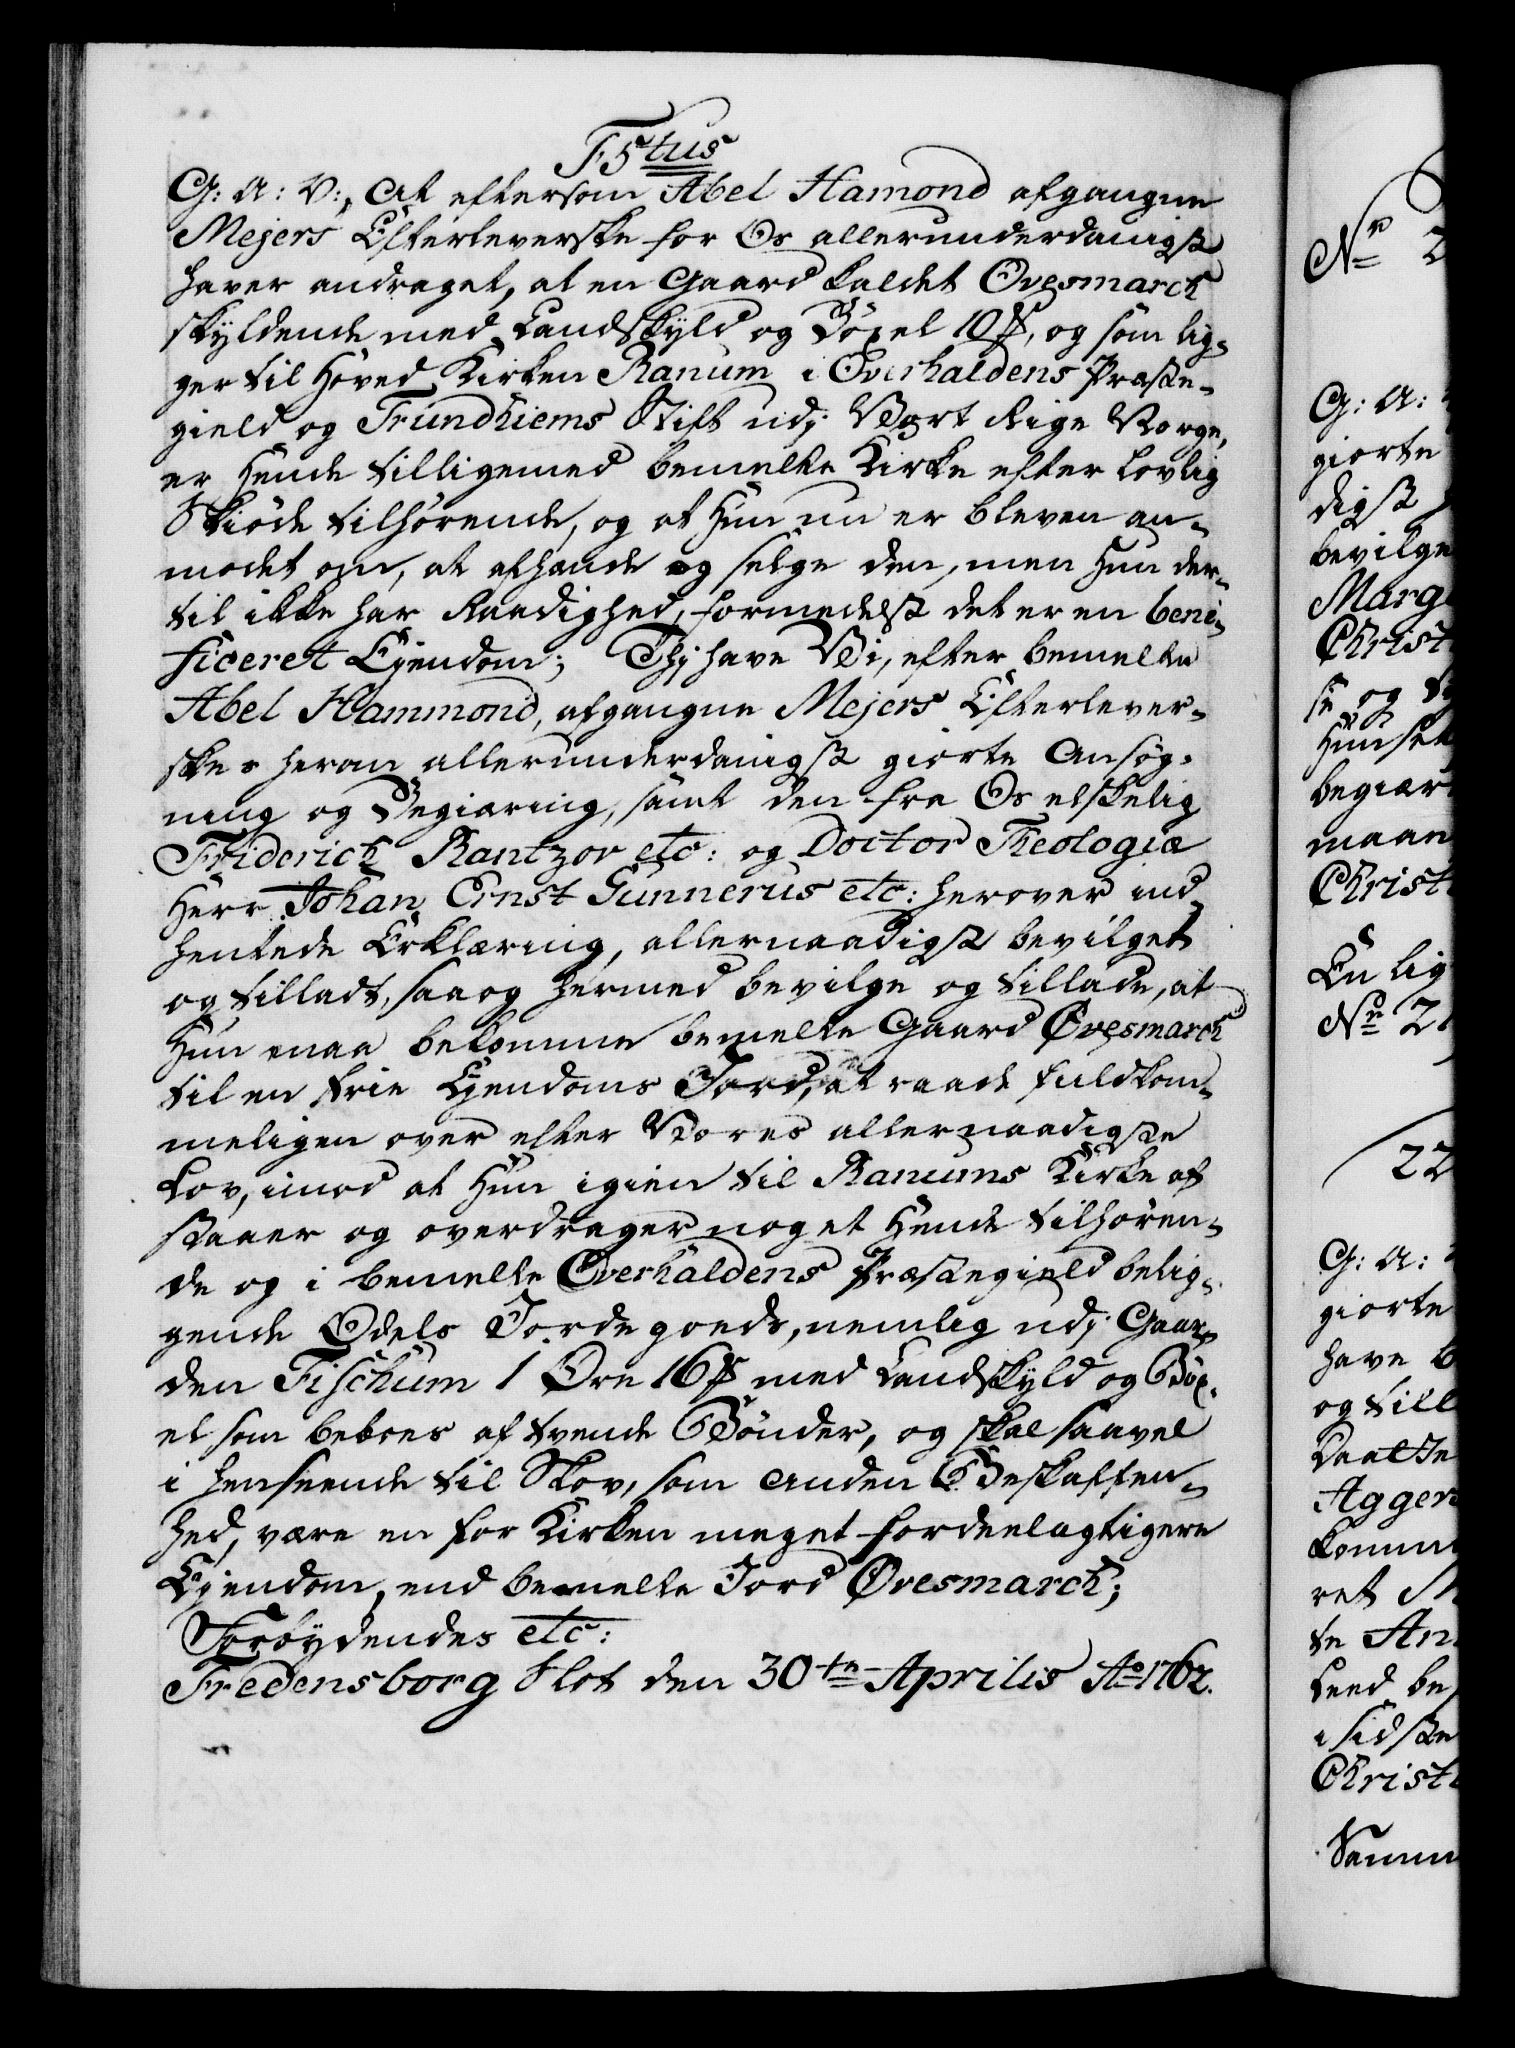 F5tus
G: A: V:, At eftersom Abel Hamond afgangne
Mejers Efterleverske for Os allerunderdanigst
haver andraget, at en Gaard kaldet Ovesmarch
skyldende med Landskyld og Böxel 10 ß, og som lig-
ger til Hoved Kirken Ranum i Overhaldens Præste-
gield og Trundhiems Stift udj Vort Rige Norge,
er Hende tilligemed bemelte Kirke efter lovlig
Skiøde tilhørende, og at Hun nu er bleven an-
modet om, at afhænde og selge den, men Hun der-
til ikke har Raadighed, formedelst det er en bene-
ficeret Ejendom; Thj have Vi, efter bemelte
Abel Hammond, afgangne Mejers Efterlever-
skes herom allerunderdanigst giorte Ansøg-
ning og Begiæring, samt den fra Os elskelig
Friderich Rantzov etc: og Doctor Theologiæ
Herr Johan Ernst Gunnerus etc: herover ind-
hentede Erklæring, allernaadigst bevilget
og tilladt, saa og hermed bevilge og tillade, at
Hun maa bekomme bemelte Gaard Øvesmarch
til en frie Ejendoms Jord, at raade fuldkom-
meligen over efter Vores allernaadigste
Lov, imod at Hun igien til Ranums Kirke af
staaer og overdrager noget Hende tilhøren-
de og i bemelte Overhaldens Præstegield belig-
gende Odels Jordegods, nemlig udj Gaar-
den Fischum 1 Øre 16 ß med Landskyld og Böx-
el som beboes af tvende Bønder, og skal saavel
i henseende til Skov, som anden Beskaffen-
hed, være en for Kirken meget fordeelagtigere
Ejendom, end bemelte Jord Øvesmarch;
Forbydendes etc:
Fredensborg Slot den 30te Aprilis Ao 1762.
Nr 2
G: A:
giorte
digst
bevilge
Marg
Christ
se og
Hunset
begiær
maan
Christ
En lig
No 21
22
G: A:
giorte
have b
og till
Daatte
Agger
komm
ret M
te An
Leed be
i sidste
Christ
Samm